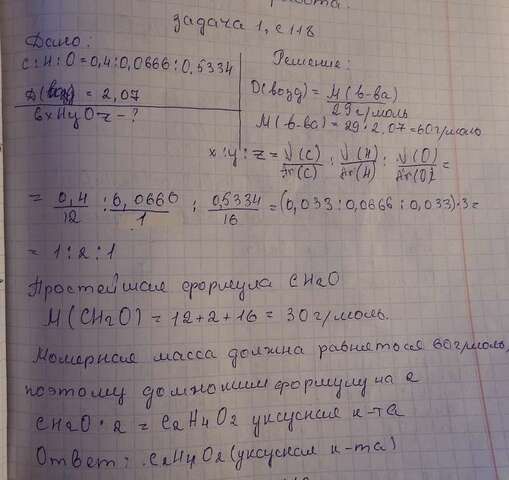 задача 1, с 118
Дано:
C:H:O=0,4:0,0666:0,5334
D(возд) = 2,07
CxHyOz - ?
Решение:
D(возд) = M(в-ва)
29 г/моль
M(в-ва) = 29·2,07=60г/моль
x:y:z = W(C) : W(H) : W(O) =
Ar(C) Ar(H) Ar(O)
= 0,4 : 0,0666 : 0,5334 = (0,033:0,0666:0,033)·3=
12 1 16
= 1:2:1
Простейшая формула CH2O
M(CH2O) = 12+2+16 = 30г/моль.
Молярная масса должна равняться 60г/моль,
поэтому домножим формулу на 2
CH2O·2 = C2H4O2 уксусная к-та
Ответ: C2H4O2 (уксусная к-та)